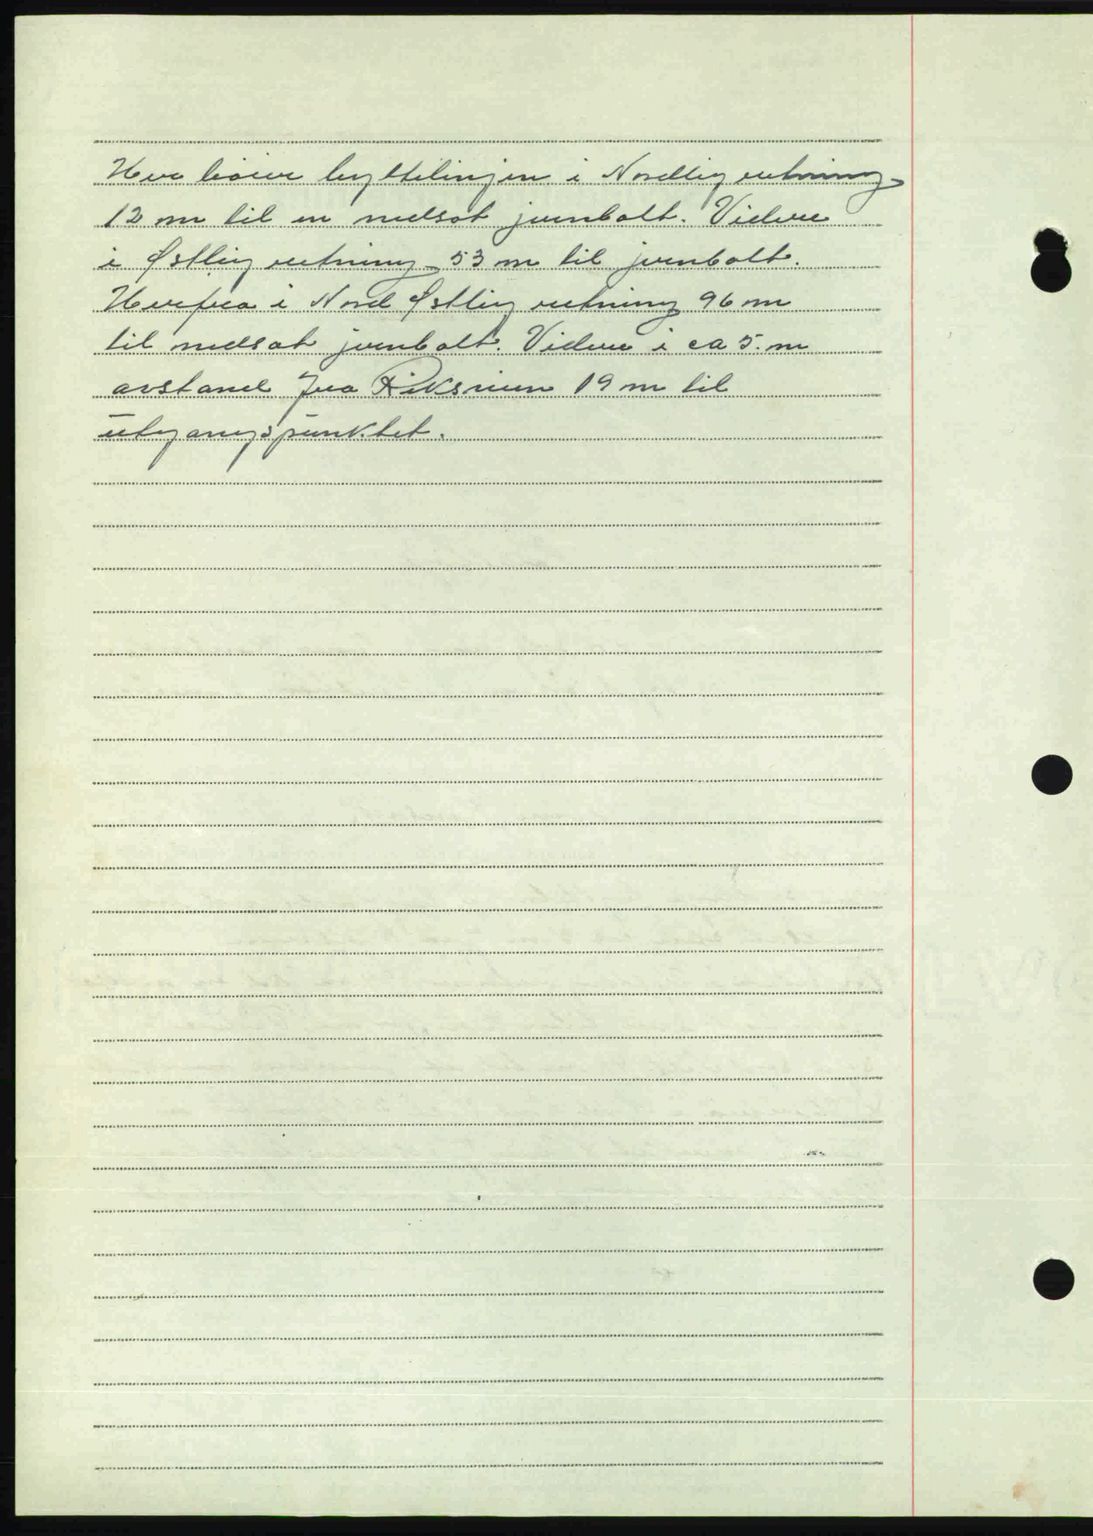 Her bøier byttelinjen i Nordlig retning
12 m til en nedsat jernbolt. Videre
i Østlig retning 53 m til jernbolt.
Herfra i Nord Østlig retning 96 m
til nedsat jernbolt. Videre i ca 5. m
avstand fra Riksveien 19 m til
utgangspunktet.